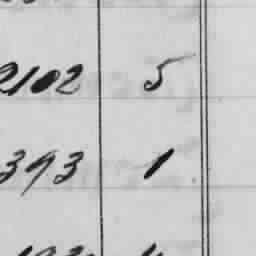 2102 5
393 1